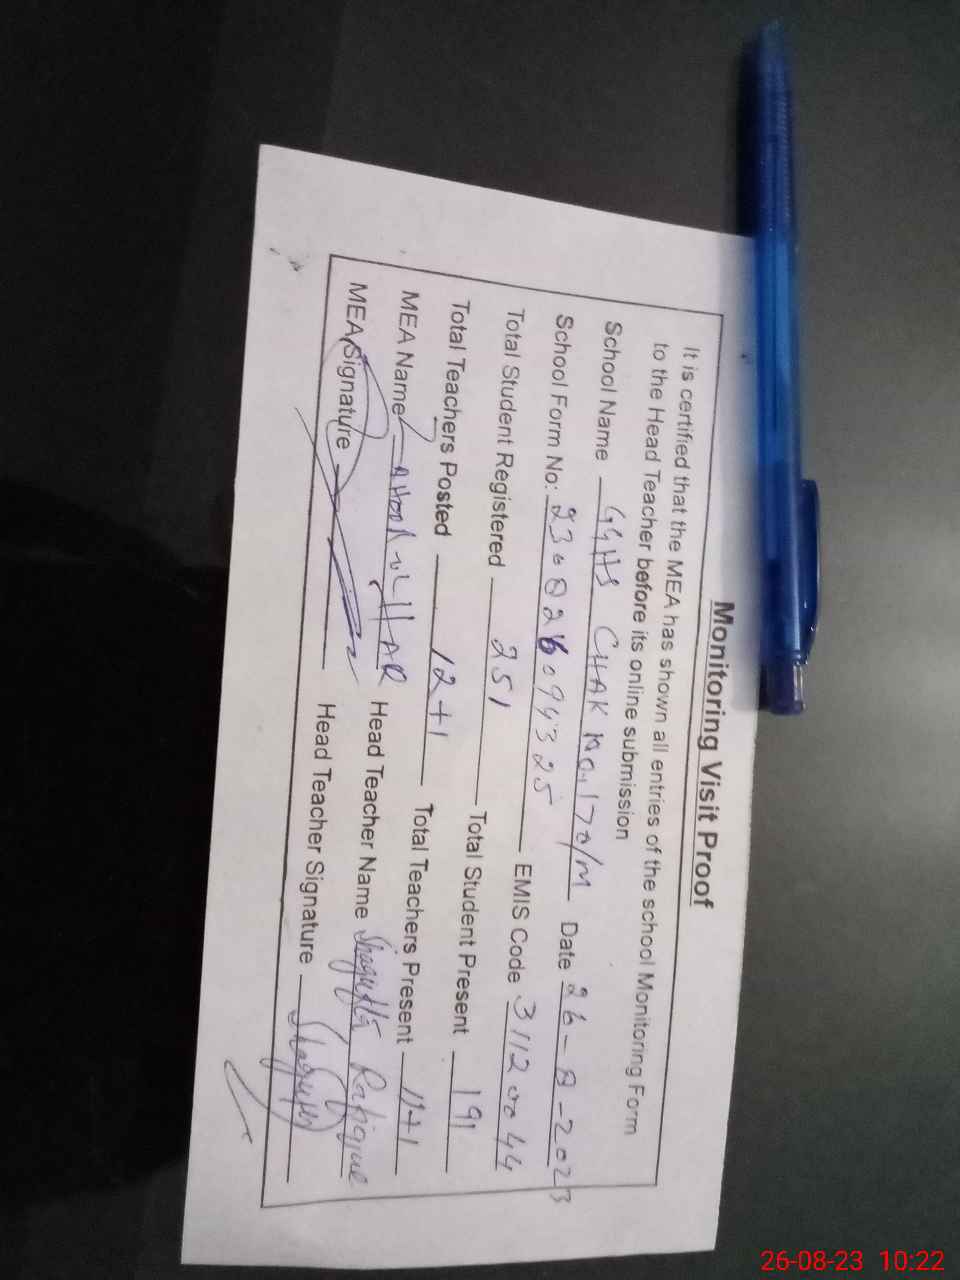 Monitoring Visit Proof
It is certified that the MEA has shown all entries of the school Monitoring Form
to the Head Teacher before its online submission
School Name GGHS CHAK NO. 170/M Date 26-8-2023
School Form No: 230826094325 EMIS Code 31120044
Total Student Registered 251 Total Student Present 191
Total Teachers Posted 12+1 Total Teachers Present 11+1
MEA Name Head Teacher Name Shagufta Rafique
MEA Signature Head Teacher Signature Shagufta
26-08-23 10:22